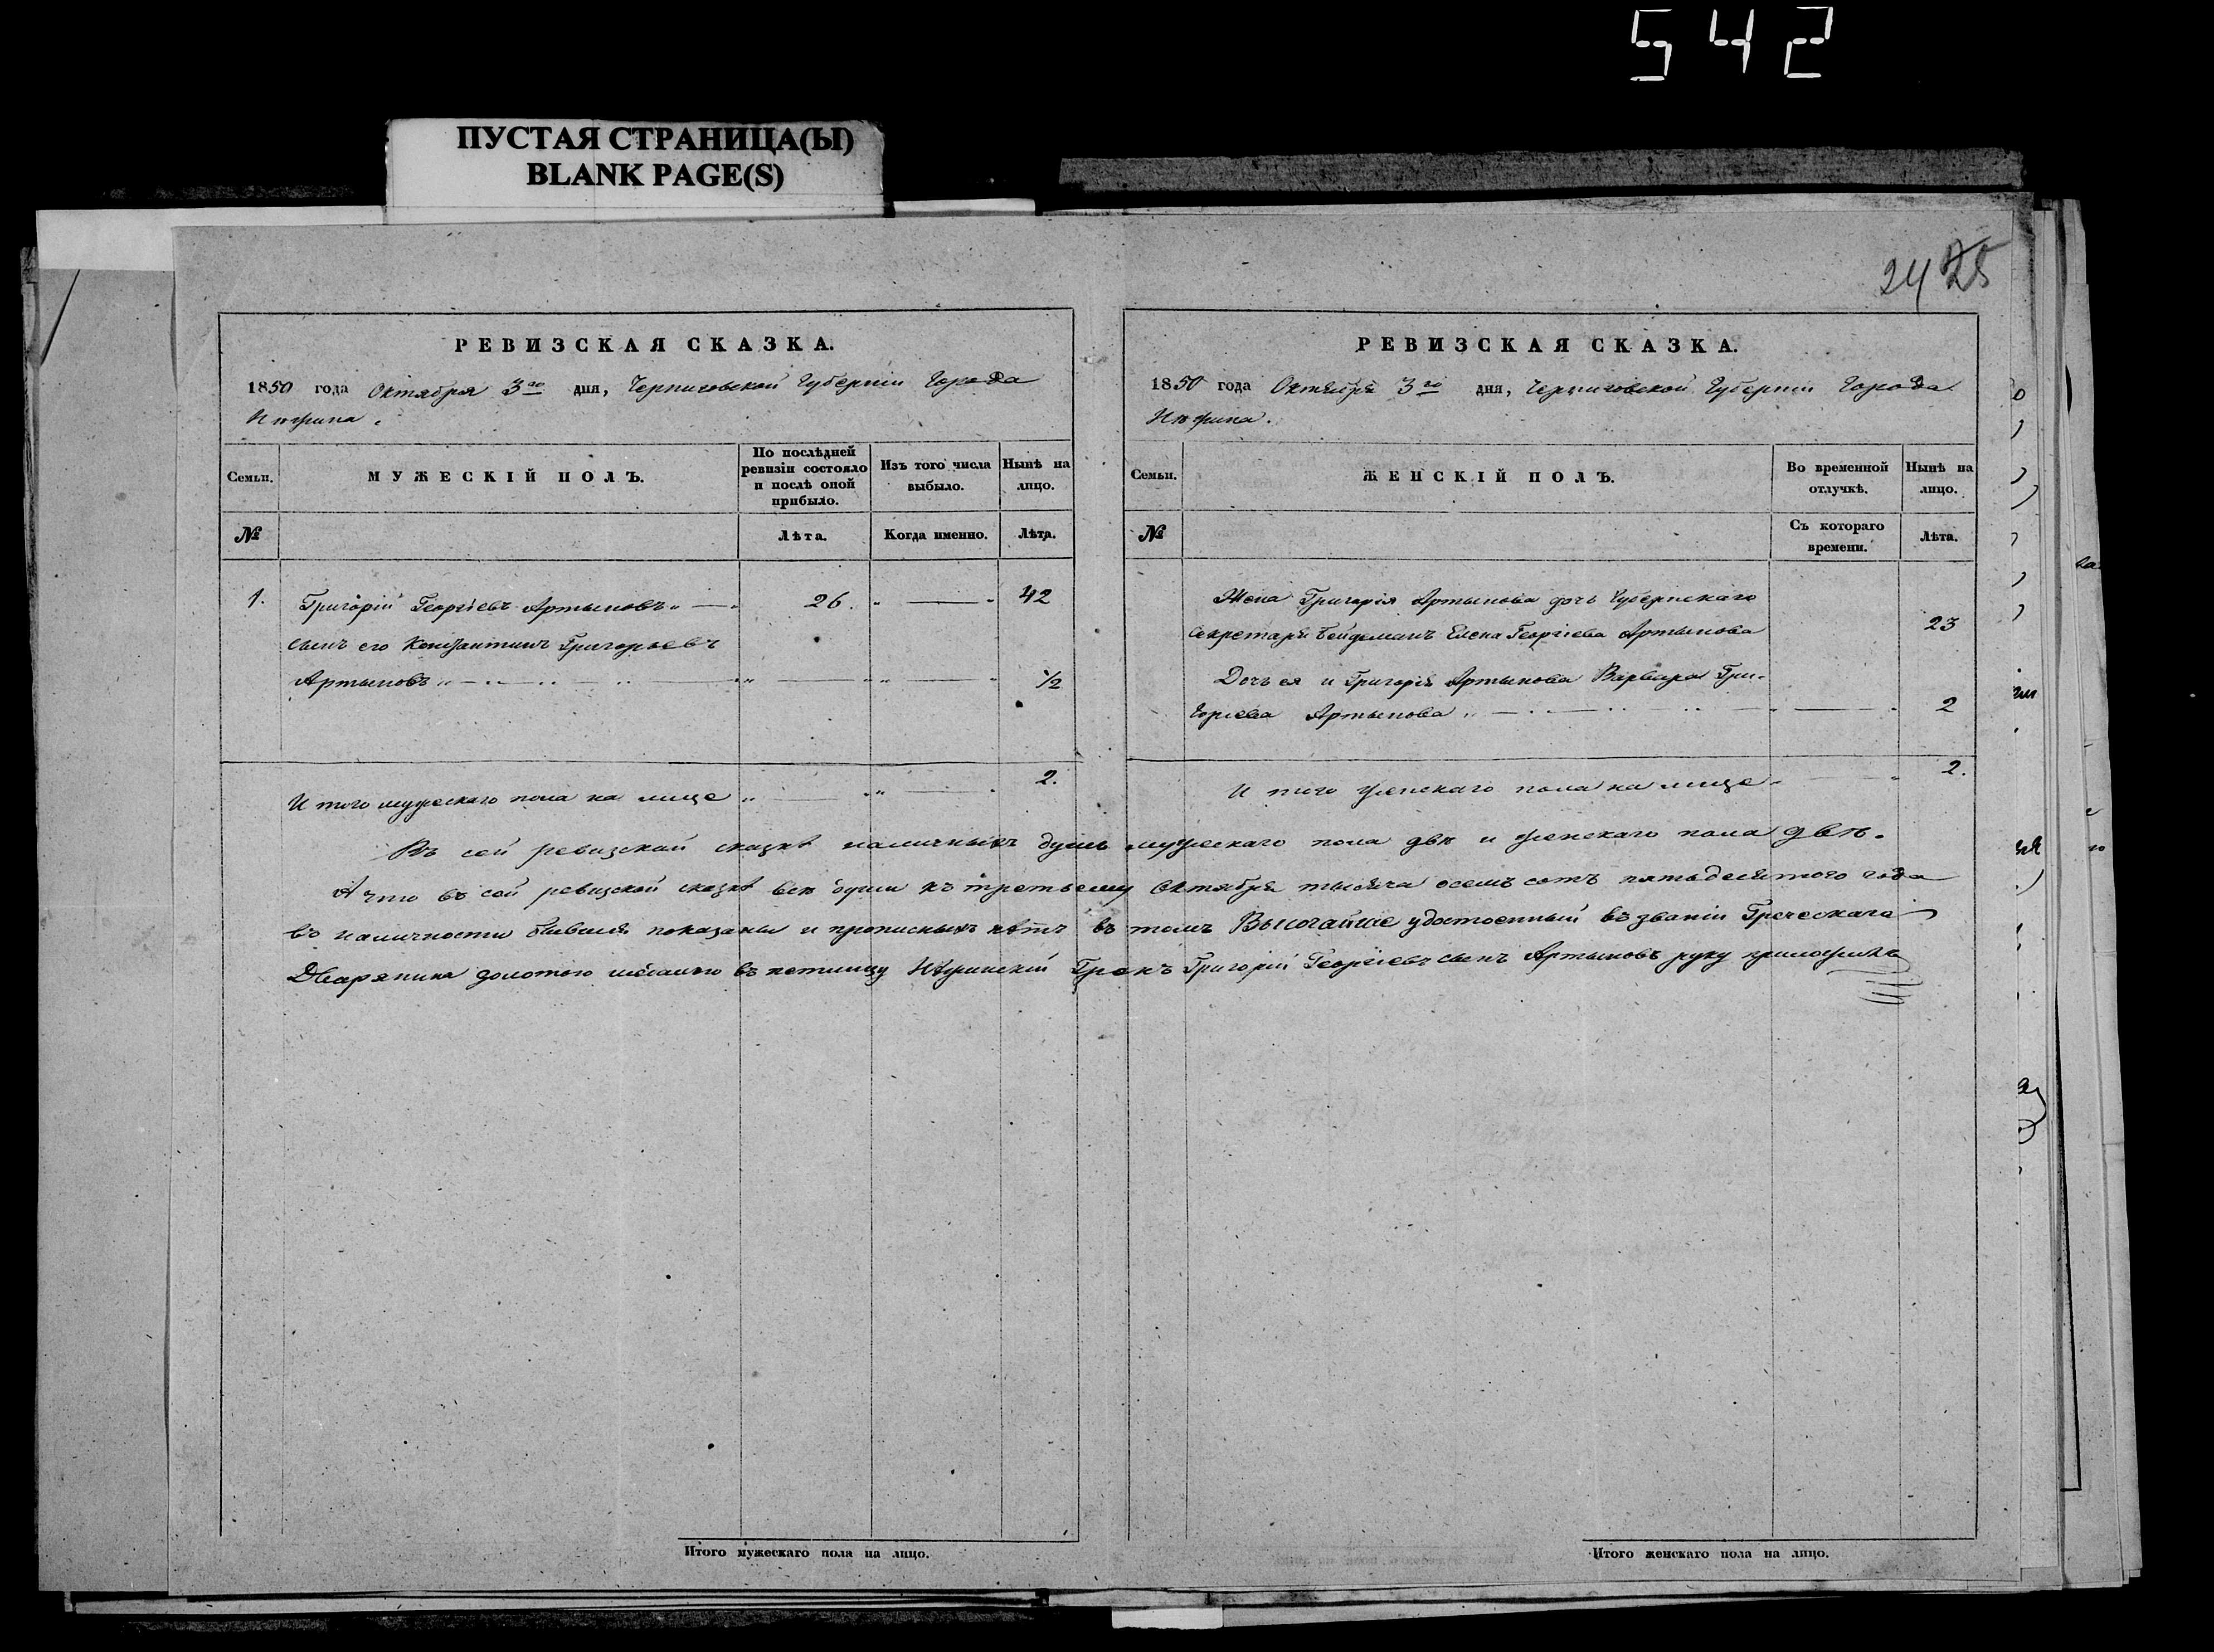 542
ПУСТАЯ СТРАНИЦА(Ы)
BLANK PAGE(S)
24 25
РЕВИЗСКАЯ СКАЗКА.
1850 года Октября 3го дня, Черниговской Губерніи Города
Нѣжина.
Семьи.
МУЖЕСКІЙ ПОЛЪ.
По послѣдней ревизіи состояло и послѣ оной прибыло.
Изъ того числа выбыло.
Нынѣ на лицо.
№
Лѣта.
Когда именно.
Лѣта.
1. Григорій Георгіевъ Артыновъ 26. 42
сынъ его Константинъ Григорьевъ
Артыновъ 1/2
Итого мужескаго пола на лице 2.
РЕВИЗСКАЯ СКАЗКА.
1850 года Октября 3го дня, Черниговской Губерніи Города
Нѣжина.
Семьи.
ЖЕНСКІЙ ПОЛЪ.
Во временной отлучкѣ.
Нынѣ на лицо.
№
Съ котораго времени.
Лѣта.
Жена Григорія Артынова дочь Губернскаго
Секретаря Бейдеманъ Елена Георгіева Артынова 23
Дочь ея и Григорія Артынова Варвара Гри-
горіева Артынова 2
Итого женскаго пола на лице 2.
Въ сей ревизской сказкѣ наличныхъ душъ мужескаго пола двѣ и женскаго пола двѣ.
А что въ сей ревизской сказкѣ всѣ души къ третьему Октября тысяча осемъ сотъ пятьдесятого года
въ наличности бывшія показаны и прописныхъ нѣтъ въ томъ Высочайше удостоенный въ званіи Греческаго
Дварянина золотою медалью въ петлицу Нѣжинскій Грекъ Григорій Георгіевъ сынъ Артыновъ руку приложилъ
Итого мужескаго пола на лицо.
Итого женскаго пола на лицо.